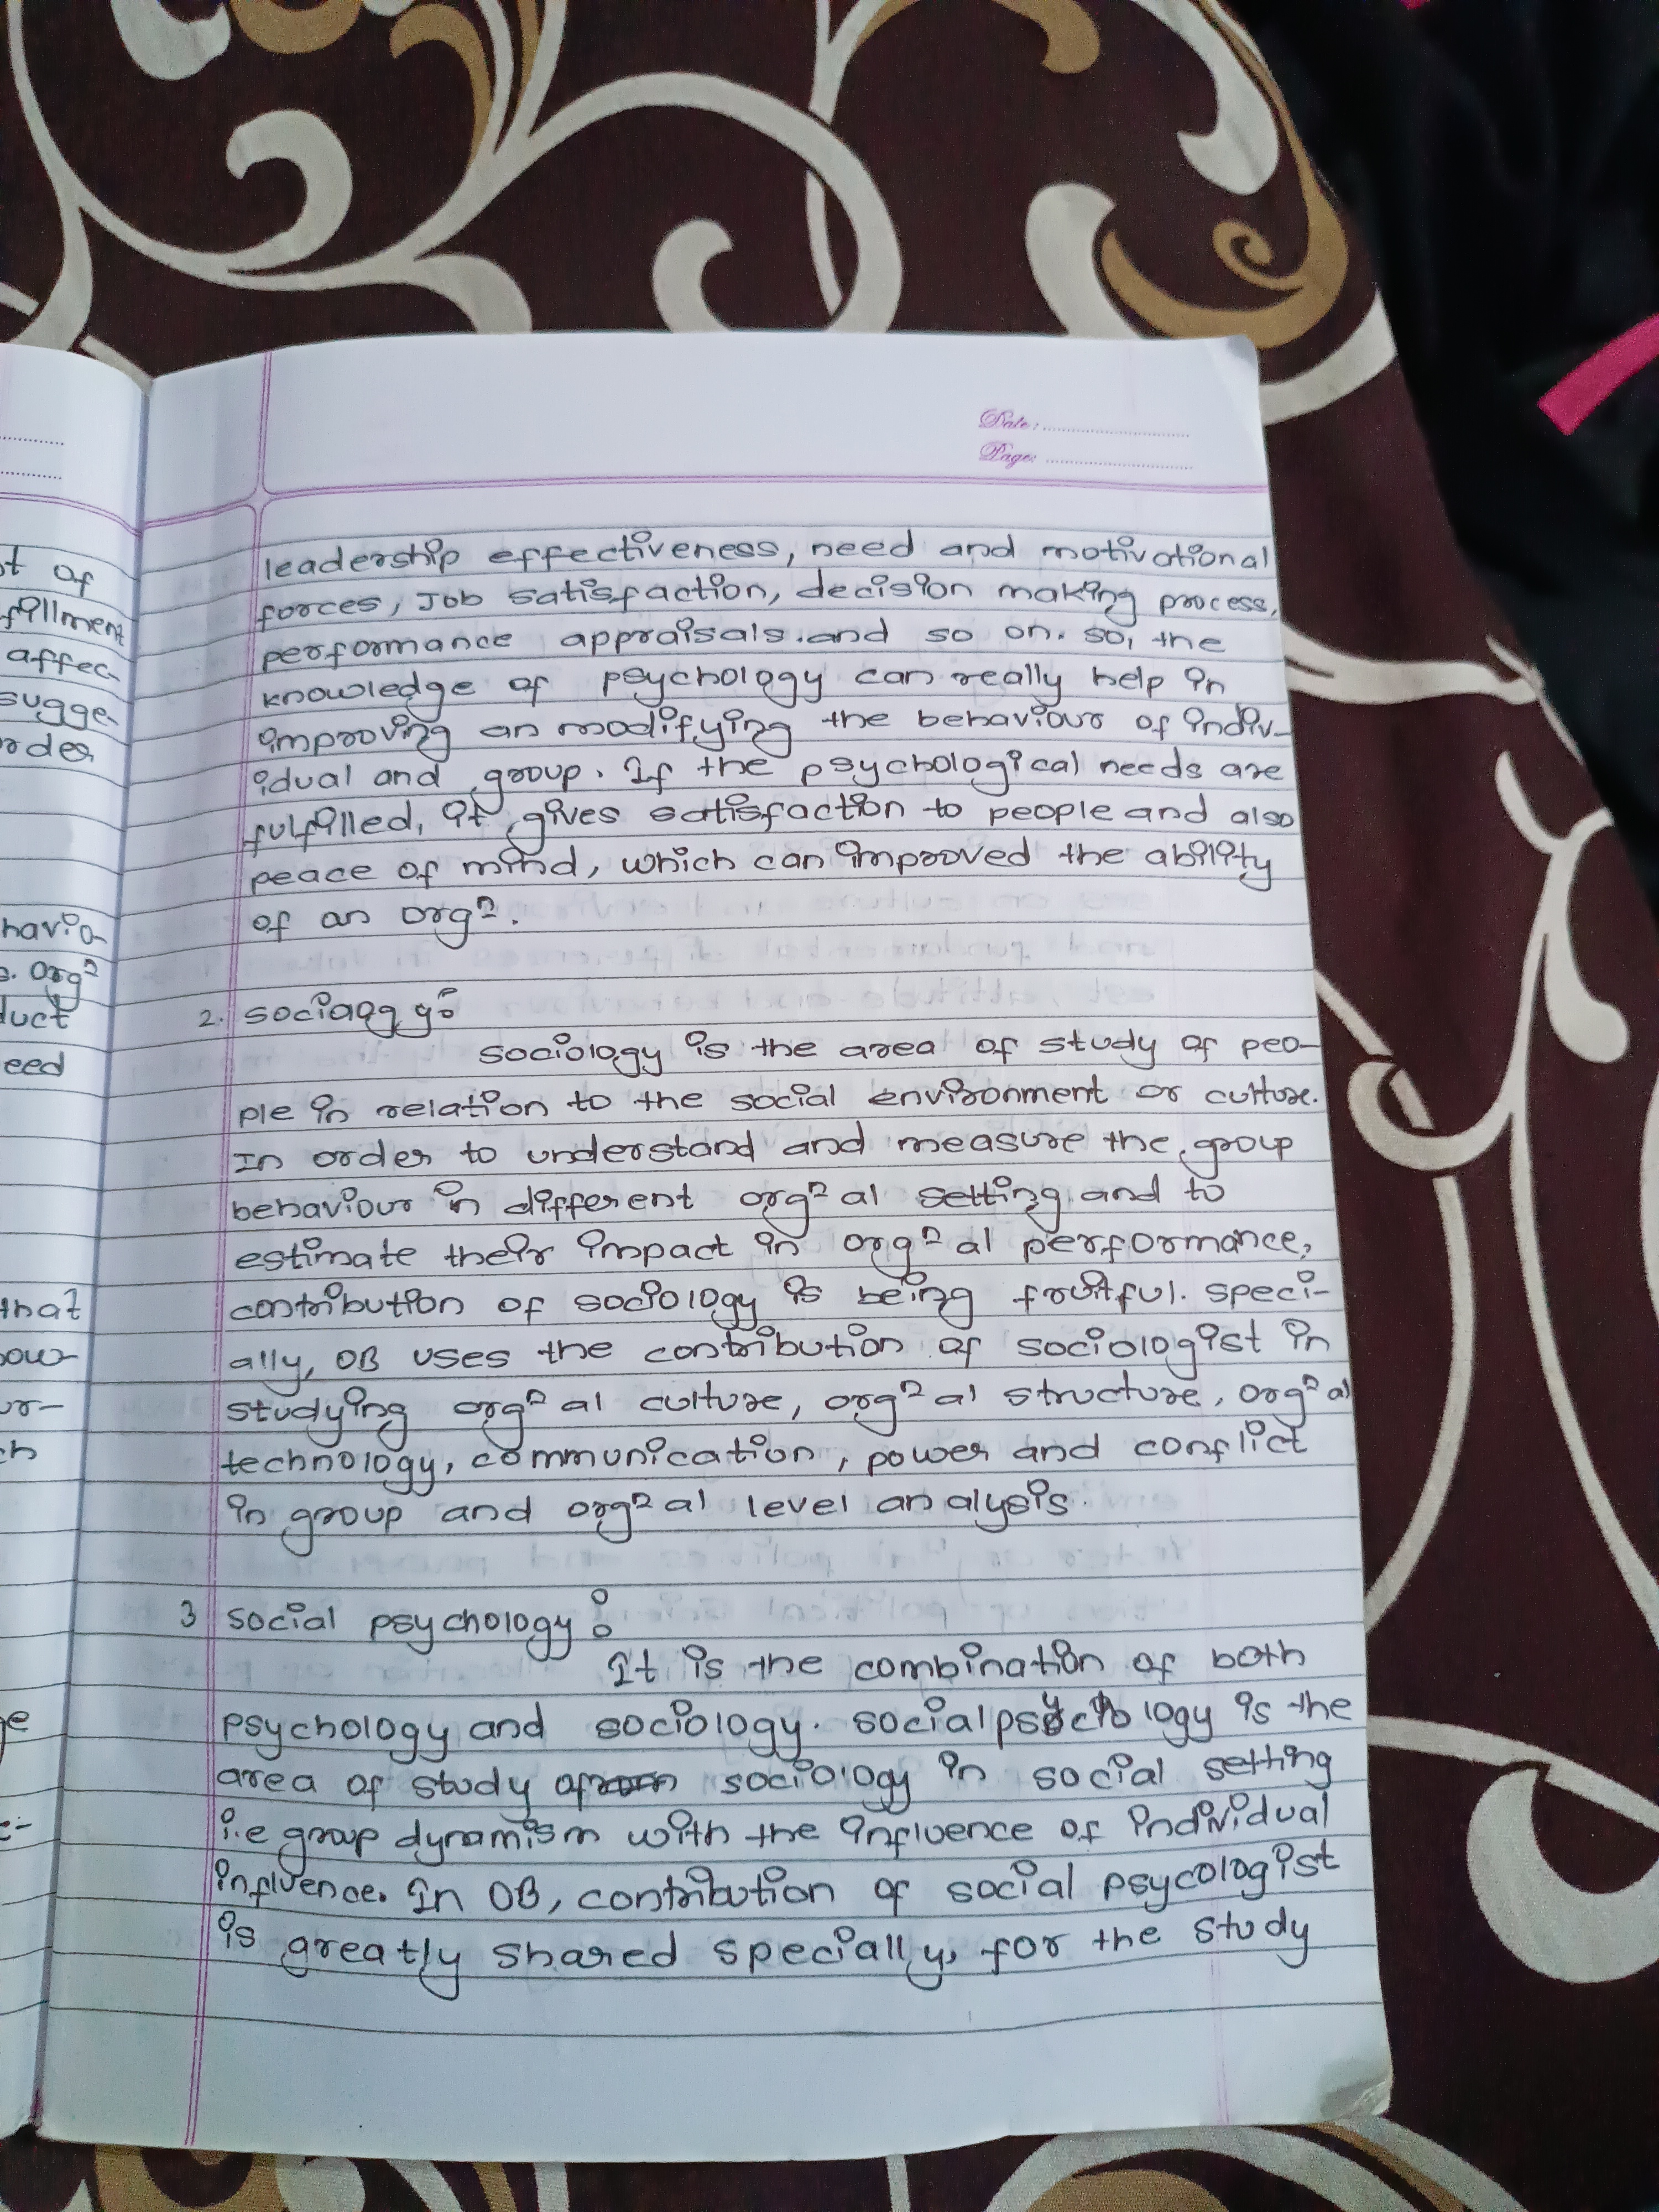 Date:
Page:
leadership effectiveness, need and motivational
forces, Job satisfaction, decision making process,
performance appraisals. and so on. so, the
knowledge of psychology can really help in
improving an modifying the behaviour of indiv-
idual and group. If the psychological needs are
fulfilled, it gives satisfaction to people and also
peace of mind, which can improved the ability
of an orgⁿ.
2. sociaogy:
sociology is the area of study of peo-
ple in relation to the social environment or culture.
In order to understand and measure the group
behaviour in different orgⁿal setting and to
estimate their impact in orgⁿal performance,
contribution of sociology is being fruitful. speci-
ally, OB uses the contribution of sociologist in
studying orgⁿal culture, orgⁿal structure, orgⁿal
technology, communication, power and conflict
in group and orgⁿal level analysis.
3 social psychology:
It is the combination of both
psychology and sociology. social psychology is the
area of study of sociology in social setting
i.e group dynamism with the influence of individual
influence. In OB, contribution of social psycologist
is greatly shared specially, for the study
of
fillment
affec-
sugge-
order
havio-
orgⁿ
duct
eed
that
ow-
or-
ch
ge